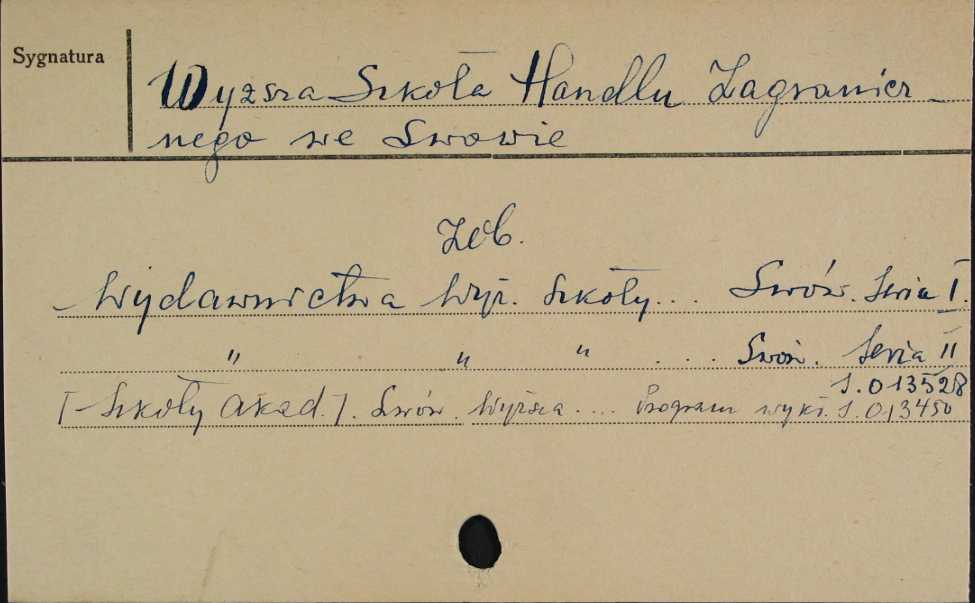 Sygnatura
Wyższa Szkoła Handlu Zagranicz-
nego we Lwowie
Zob.
Wydawnictwa Wyż. Szkoły... Lwów. Seria I.
" " " .... Lwów. Seria II
S. 013528
[Szkoły Akad.]. Lwów. Wyższa .... Program wykł. S. 013450